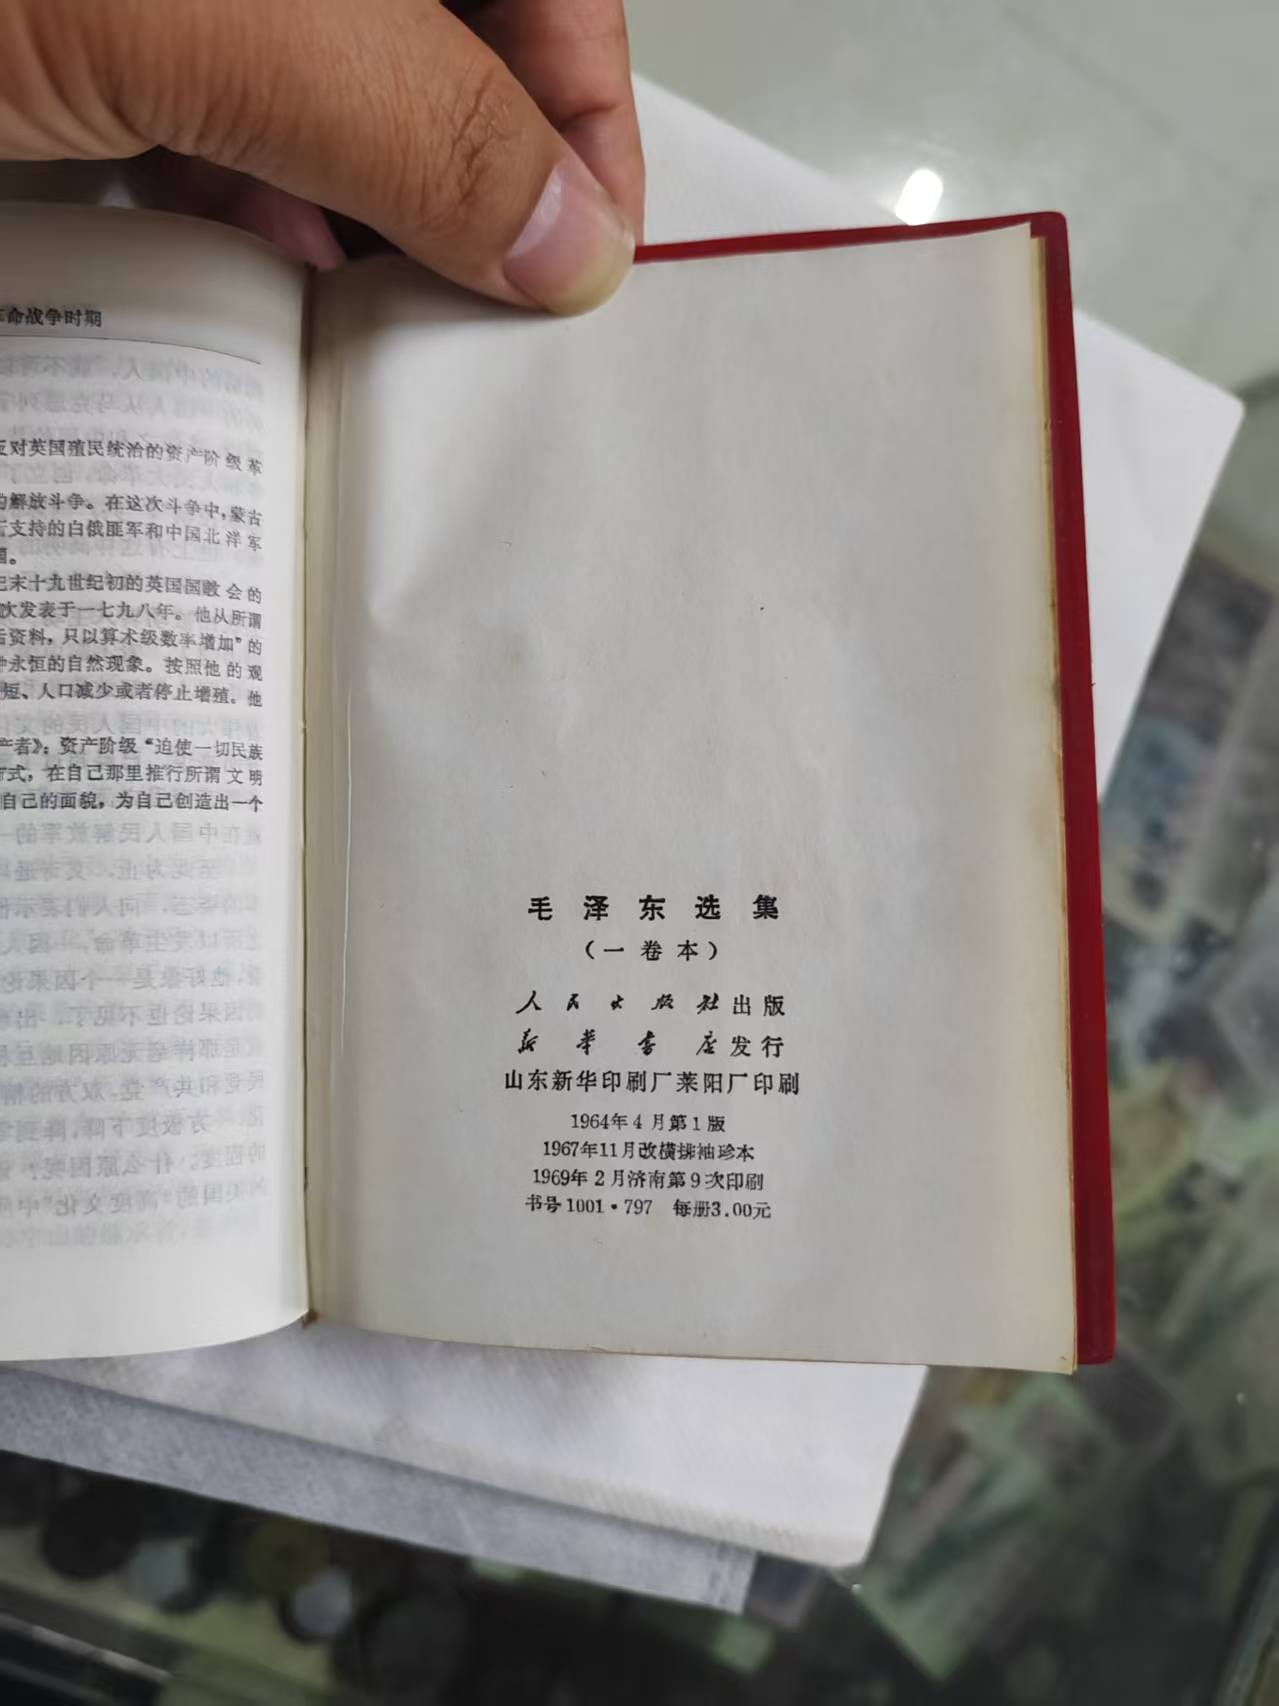 革命战争时期
反对英国殖民统治的资产阶级革
的解放斗争。在这次斗争中，蒙古
所支持的白俄匪军和中国北洋军
国。
纪末十九世纪初的英国国教会的
次发表于一七九八年。他从所谓
活资料，只以算术级数率增加”的
种永恒的自然现象。按照他的观
短、人口减少或者停止增殖。他
产者》：资产阶级“迫使一切民族
方式，在自己那里推行所谓文明
自己的面貌，为自己创造出一个
毛泽东选集
（一卷本）
人民出版社出版
新华书店发行
山东新华印刷厂莱阳厂印刷
1964年4月第1版
1967年11月改横排袖珍本
1969年2月济南第9次印刷
书号1001·797 每册3.00元